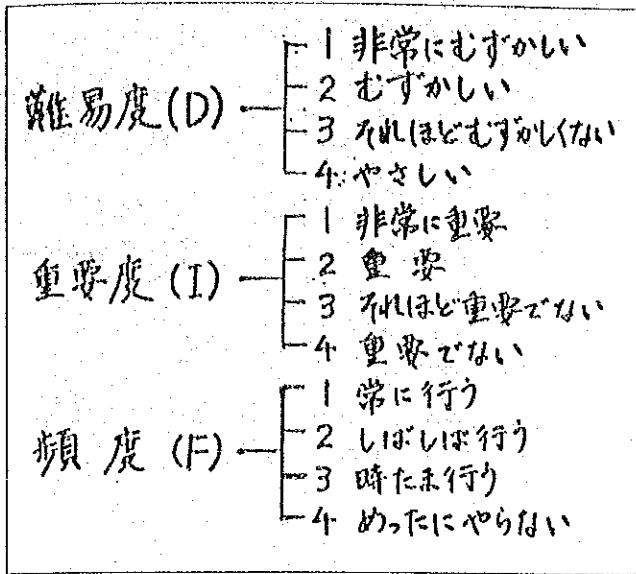 難易度(D)
1 非常にむずかしい
2 むずかしい
3 それほどむずかしくない
4 やさしい
重要度(I)
1 非常に重要
2 重要
3 それほど重要でない
4 重要でない
頻度(F)
1 常に行う
2 しばしば行う
3 時たま行う
4 めったにやらない